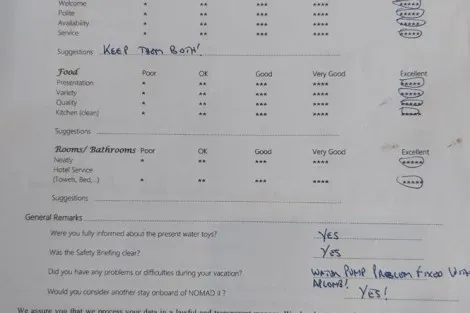 Welcome * ** *** **** *****
Polite * ** *** **** *****
Availability * ** *** **** *****
Service * ** *** **** *****
Suggestions KEEP THEM BOTH!
Food Poor OK Good Very Good Excellent
Presentation * ** *** **** *****
Variety * ** *** **** *****
Quality * ** *** **** *****
Kitchen (clean) * ** *** **** *****
Suggestions
Rooms/ Bathrooms Poor OK Good Very Good Excellent
Neatly * ** *** **** *****
Hotel Service
(Towels, Bed,...) * ** *** **** *****
Suggestions
General Remarks
Were you fully informed about the present water toys? YES
Was the Safety Briefing clear? YES
Did you have any problems or difficulties during your vacation? WATER PUMP PROBLEM FIXED WITH
APLOMB!
Would you consider another stay onboard of NOMAD II? YES!
We assure you that we process your data in a lawful and transparent manner. We